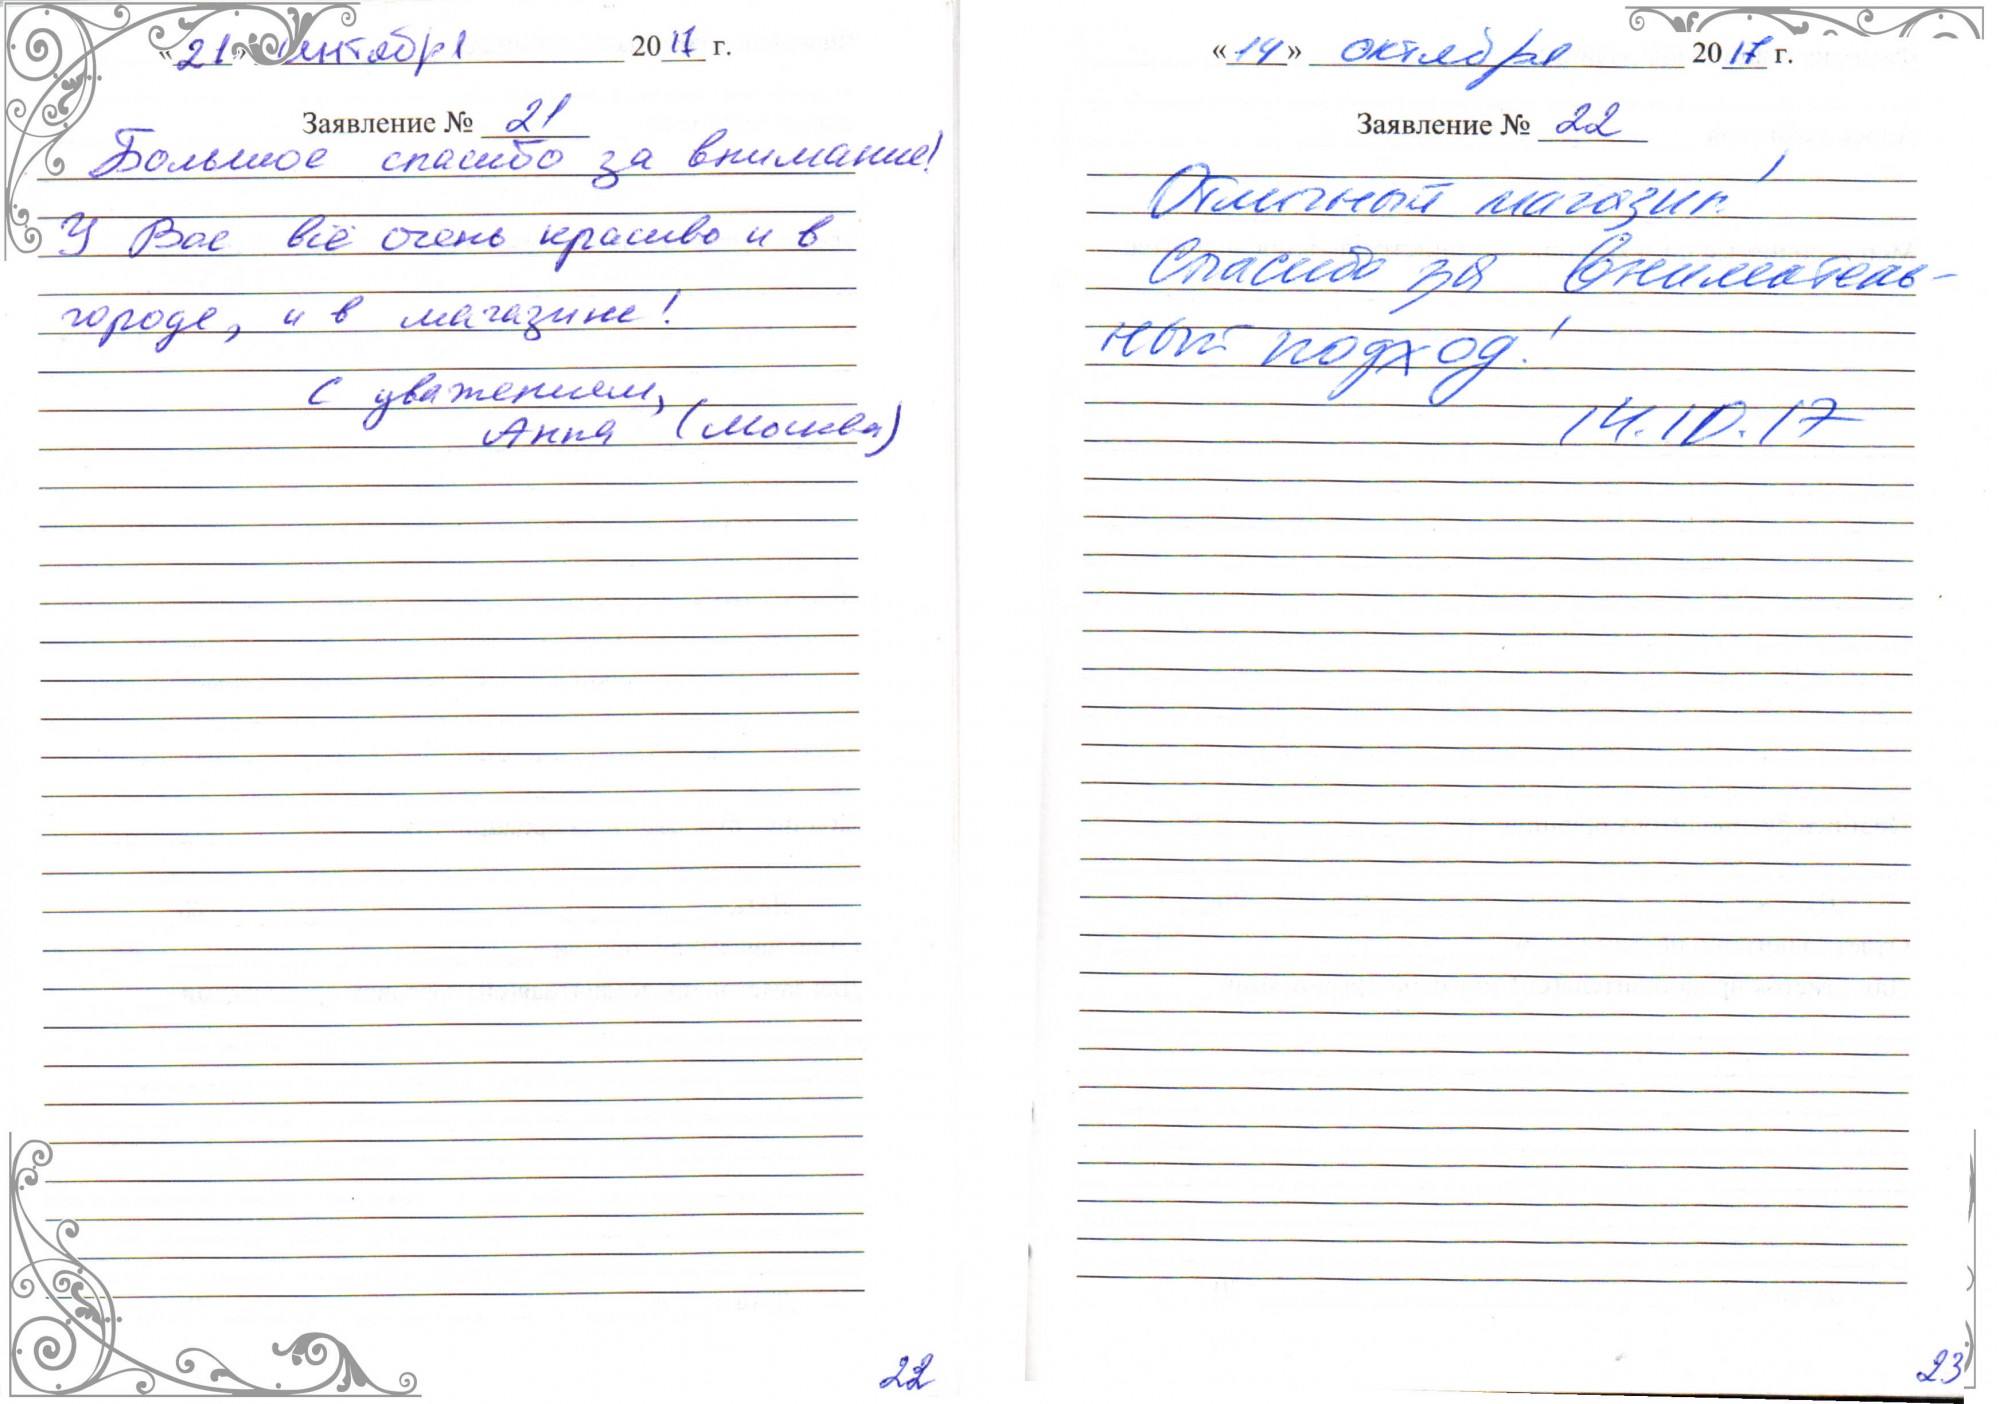 «21» сентября 2017 г.
Заявление № 21
Большое спасибо за внимание!
У Вас всё очень красиво и в
городе, и в магазине!
С уважением,
Анна (Москва)
22
«14» октября 2017 г.
Заявление № 22
Отличный магазин!
Спасибо за вниматель-
ный подход!
14.10.17
23